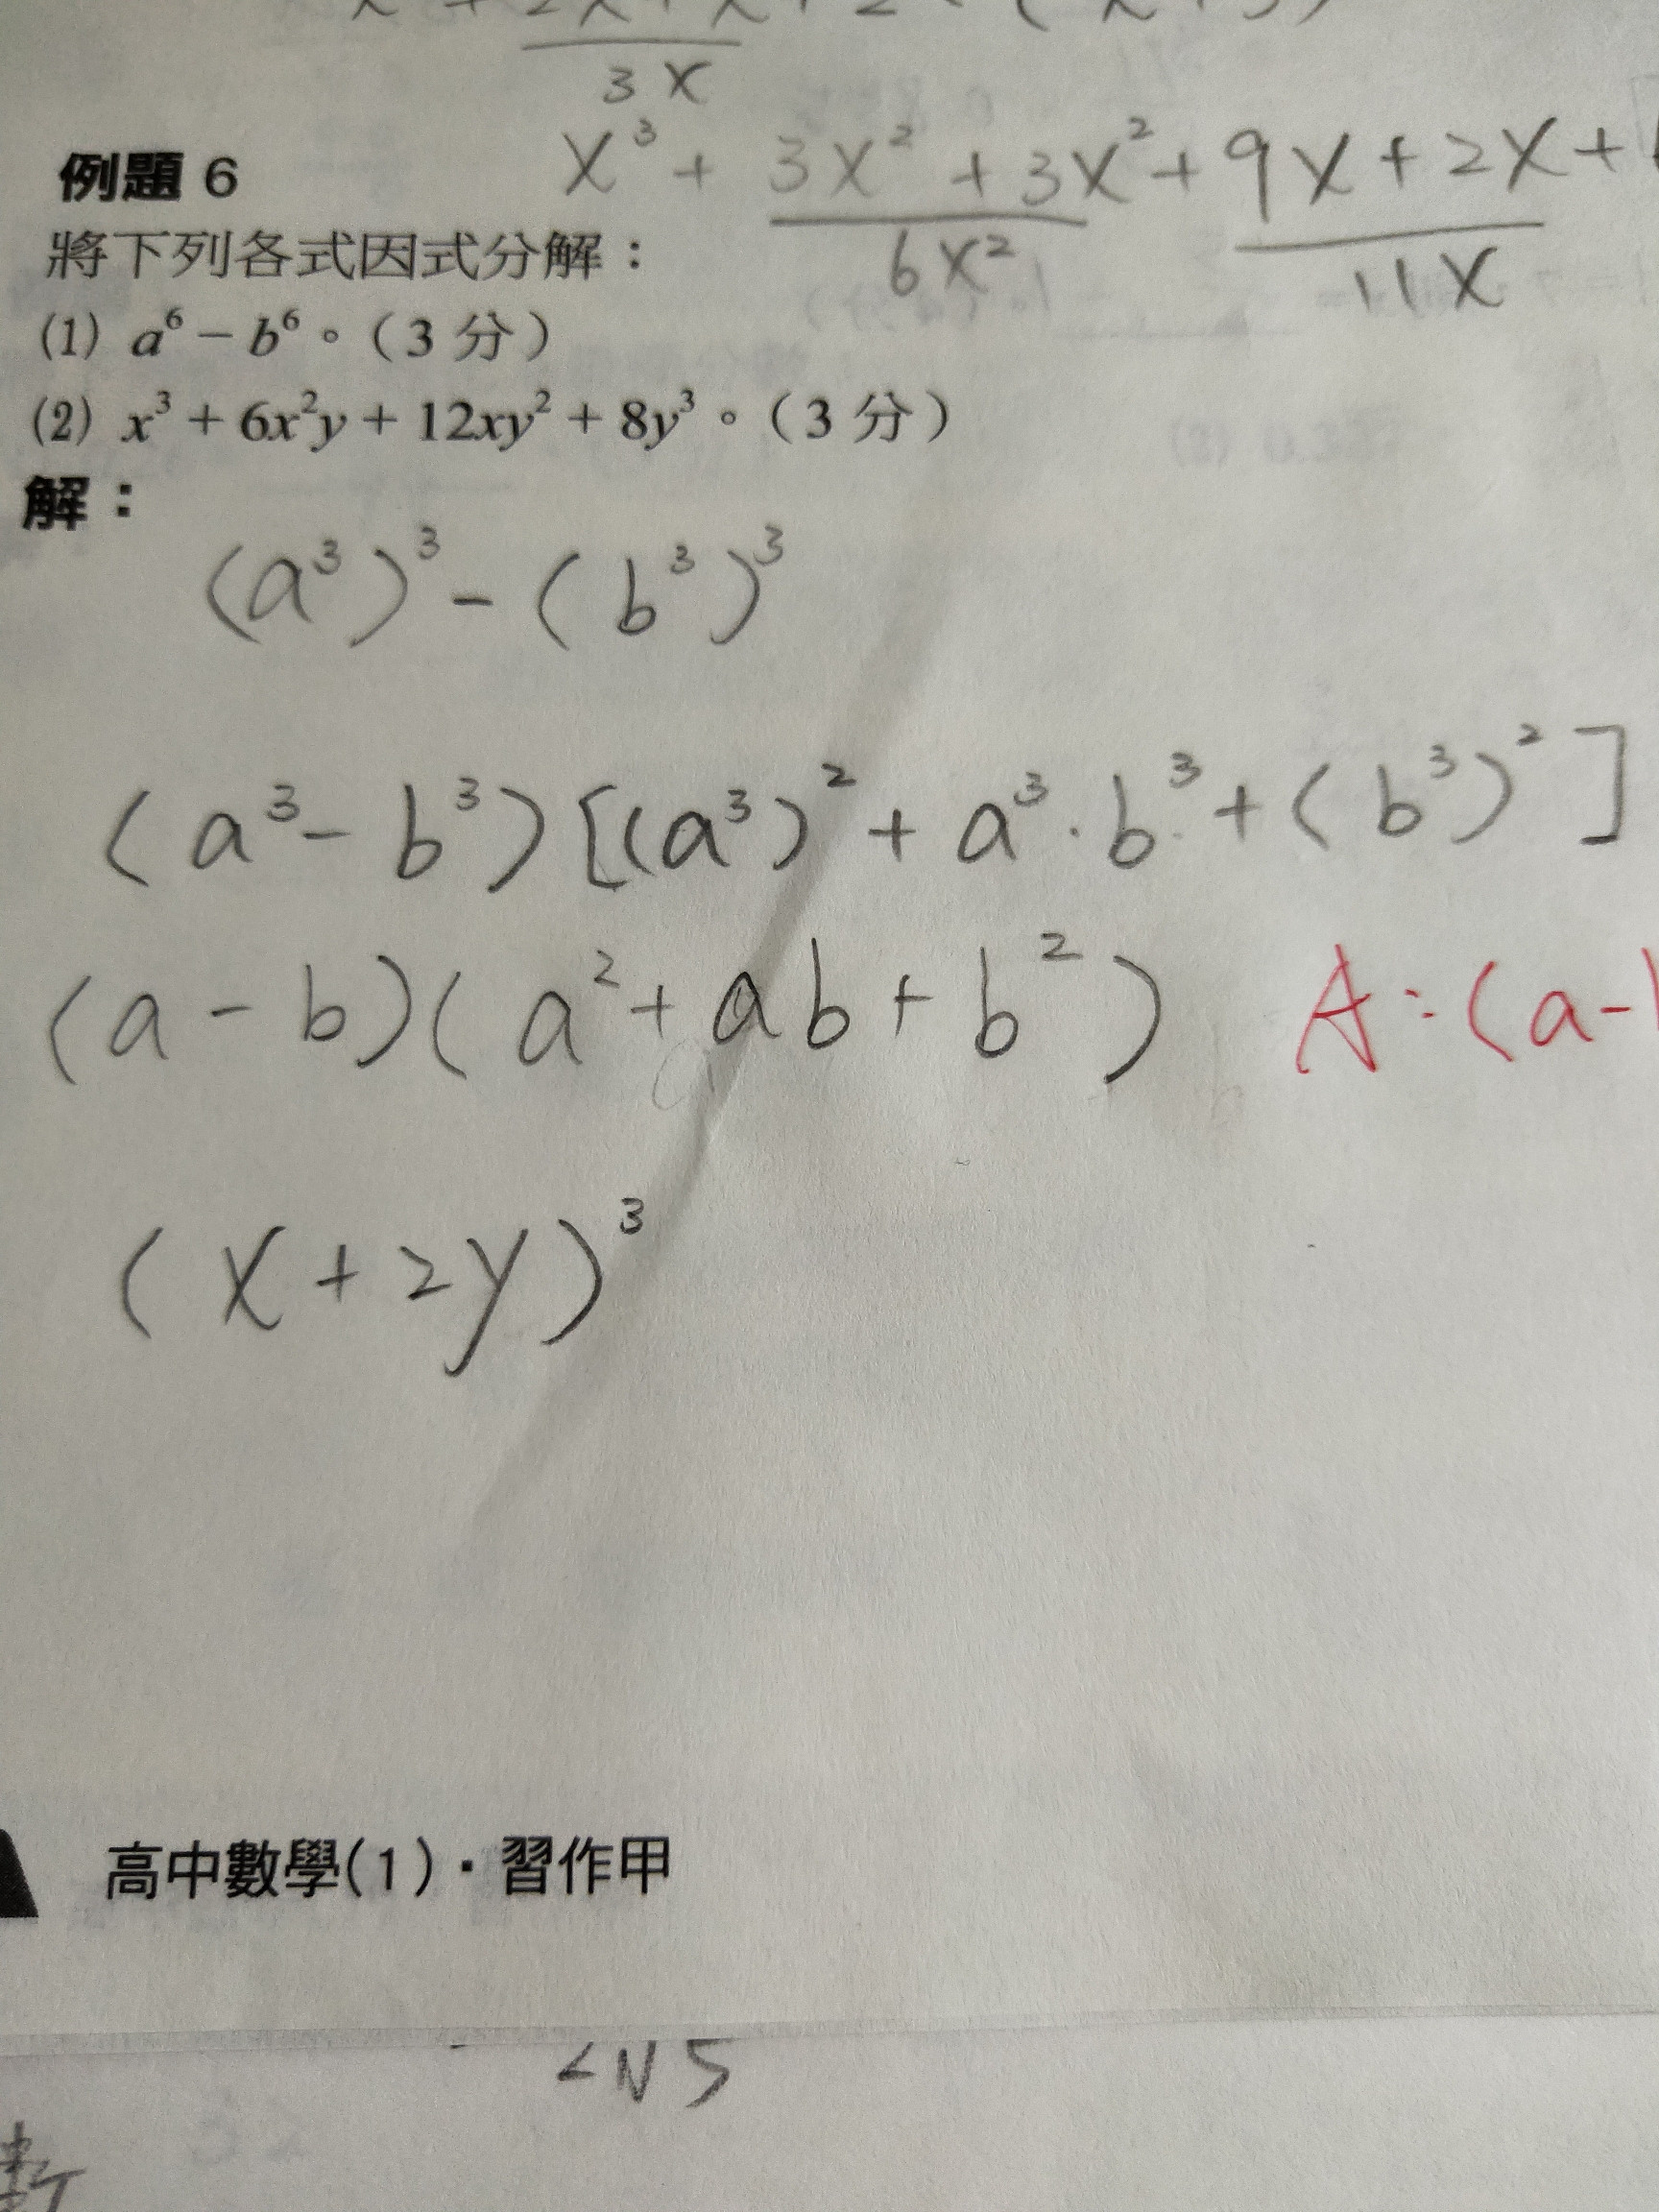 3x
x³ + 3x² + 3x² + 9x + 2x +
6x² 11x
例題 6
將下列各式因式分解：
(1) a⁶ − b⁶。（3 分）
(2) x³ + 6x²y + 12xy² + 8y³。（3 分）
解：
(a³)³ - (b³)³
(a³ - b³)[(a³)² + a³·b³ + (b³)²]
(a - b)(a² + ab + b²) A：(a-
(x + 2y)³
高中數學(1)·習作甲